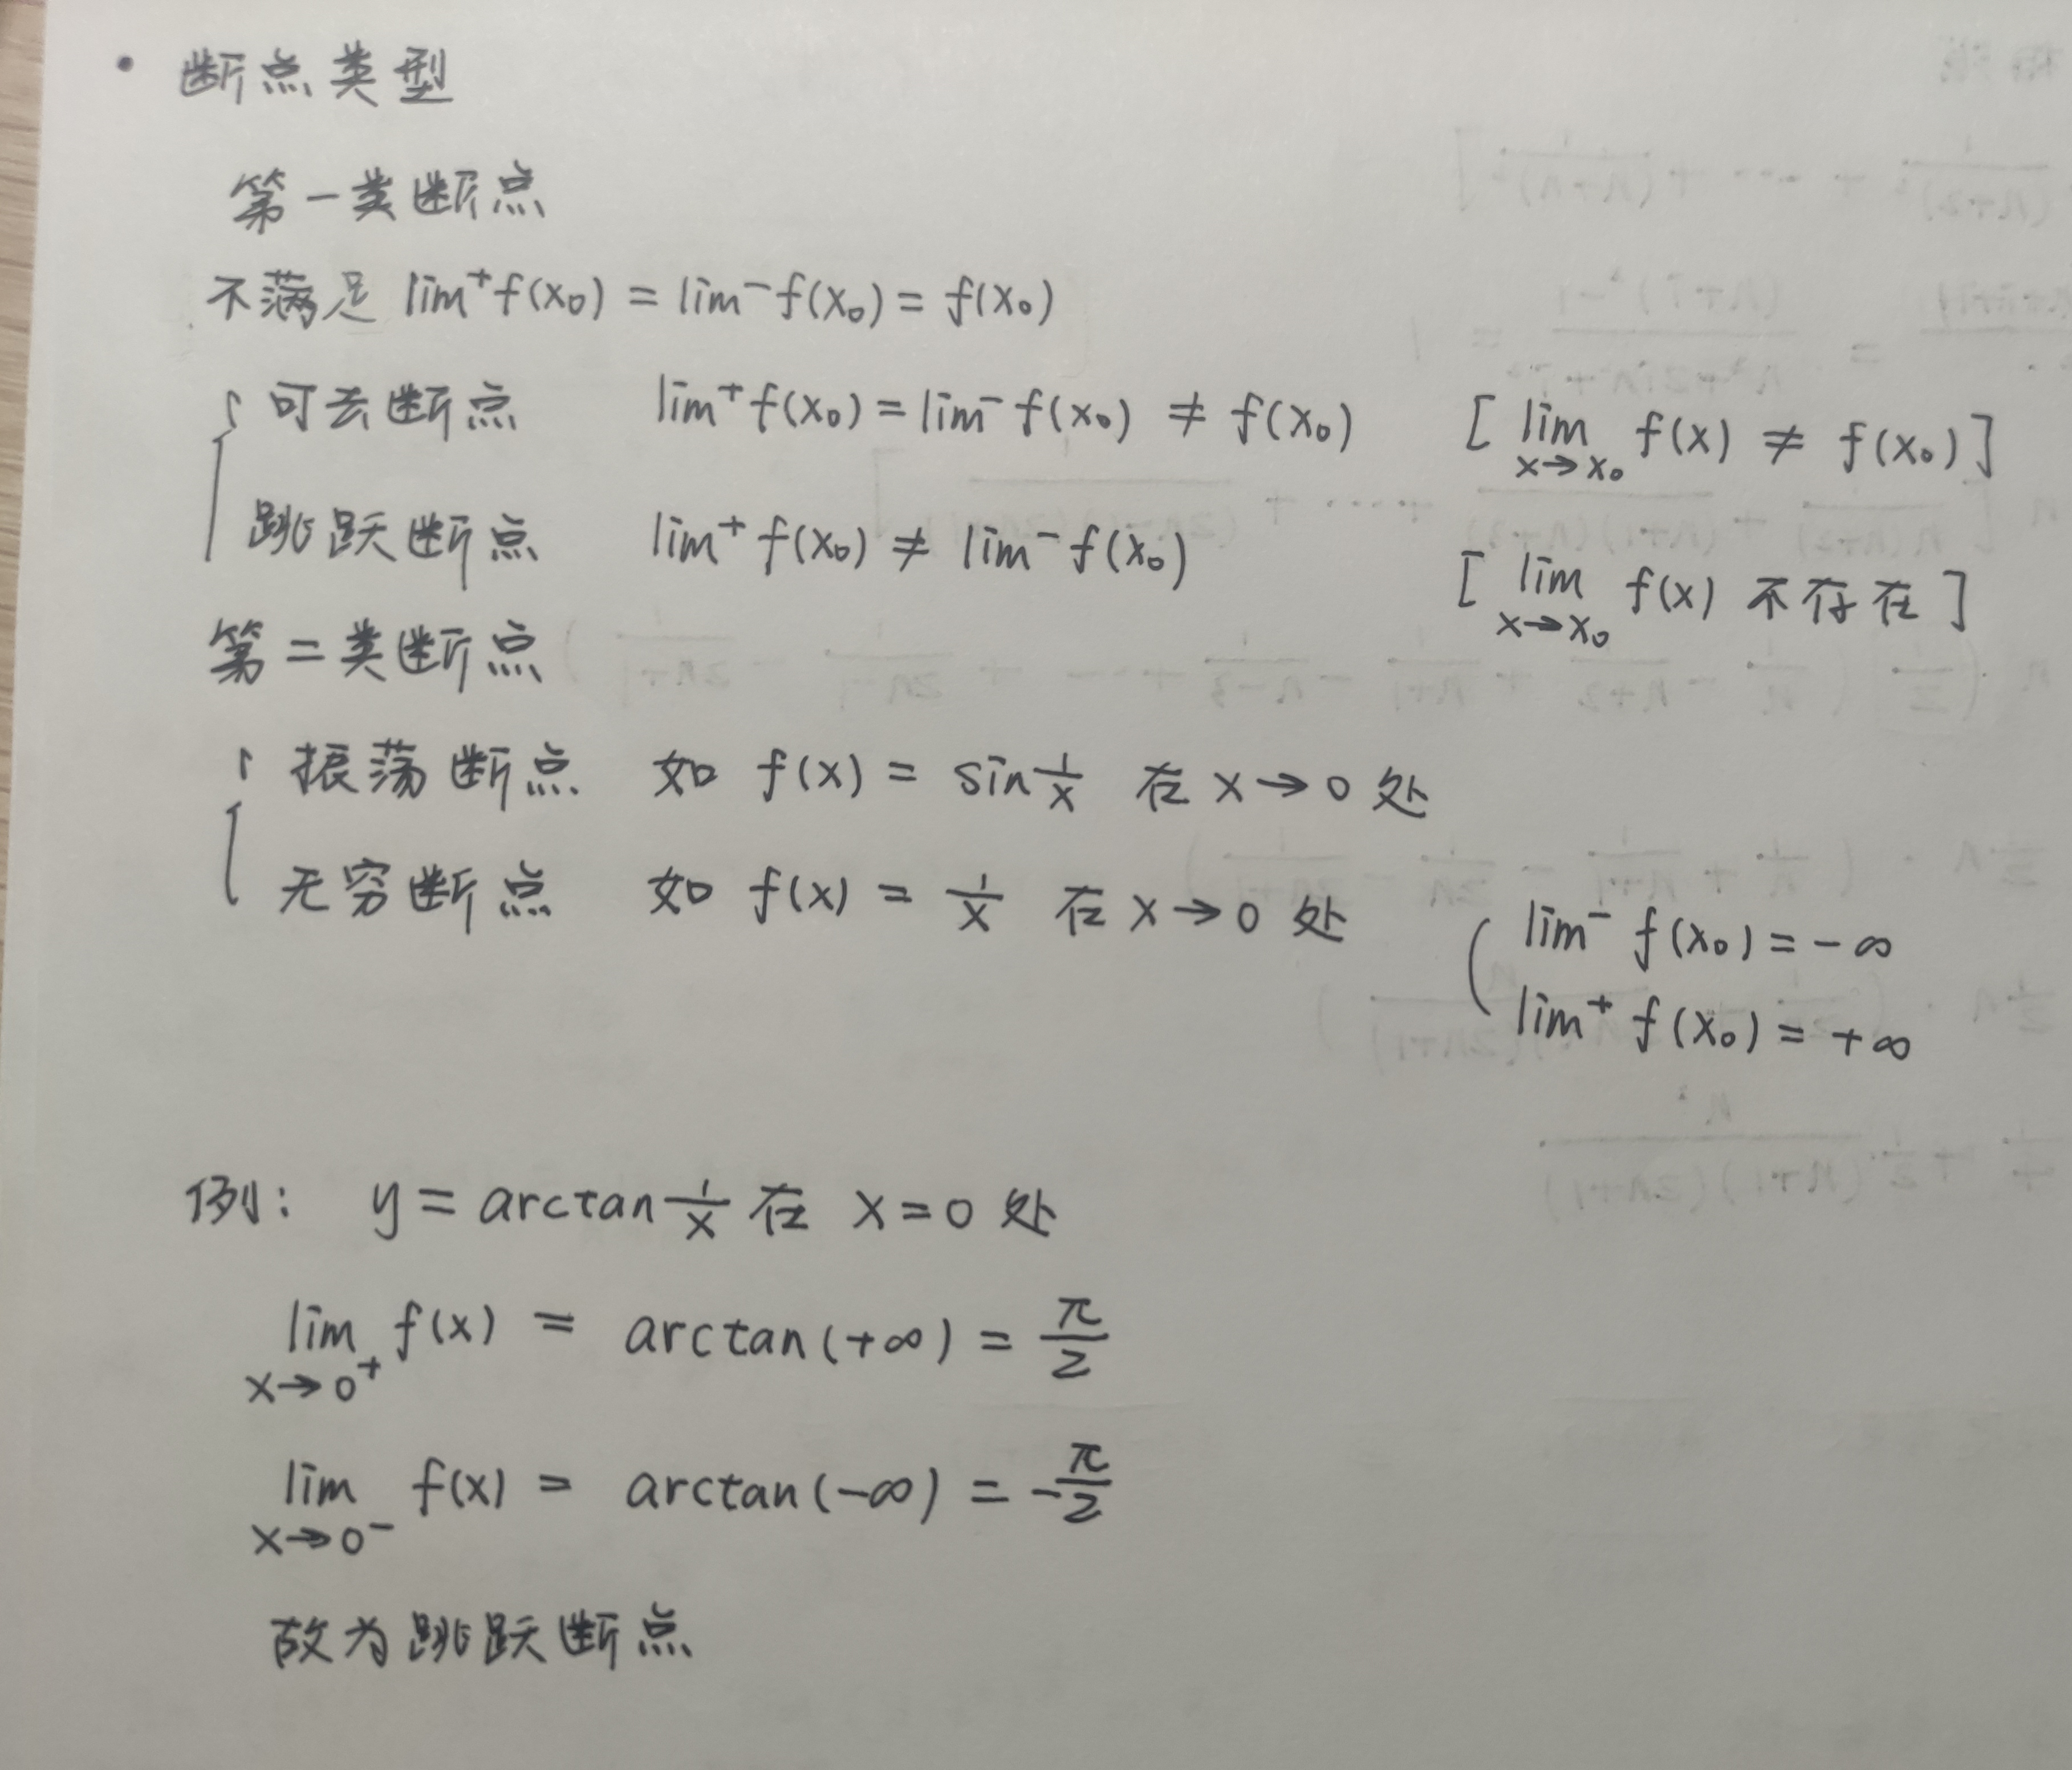 · 断点类型
第一类断点
不满足 lim⁺f(x₀) = lim⁻f(x₀) = f(x₀)
可去断点 lim⁺f(x₀) = lim⁻f(x₀) ≠ f(x₀) [lim x→x₀ f(x) ≠ f(x₀)]
跳跃断点 lim⁺f(x₀) ≠ lim⁻f(x₀) [lim x→x₀ f(x) 不存在]
第二类断点
振荡断点 如 f(x) = sin 1/x 在 x→0 处
无穷断点 如 f(x) = 1/x 在 x→0 处
( lim⁻ f(x₀) = -∞
lim⁺ f(x₀) = +∞
例: y = arctan 1/x 在 x=0 处
lim x→0⁺ f(x) = arctan(+∞) = π/2
lim x→0⁻ f(x) = arctan(-∞) = -π/2
故为跳跃断点